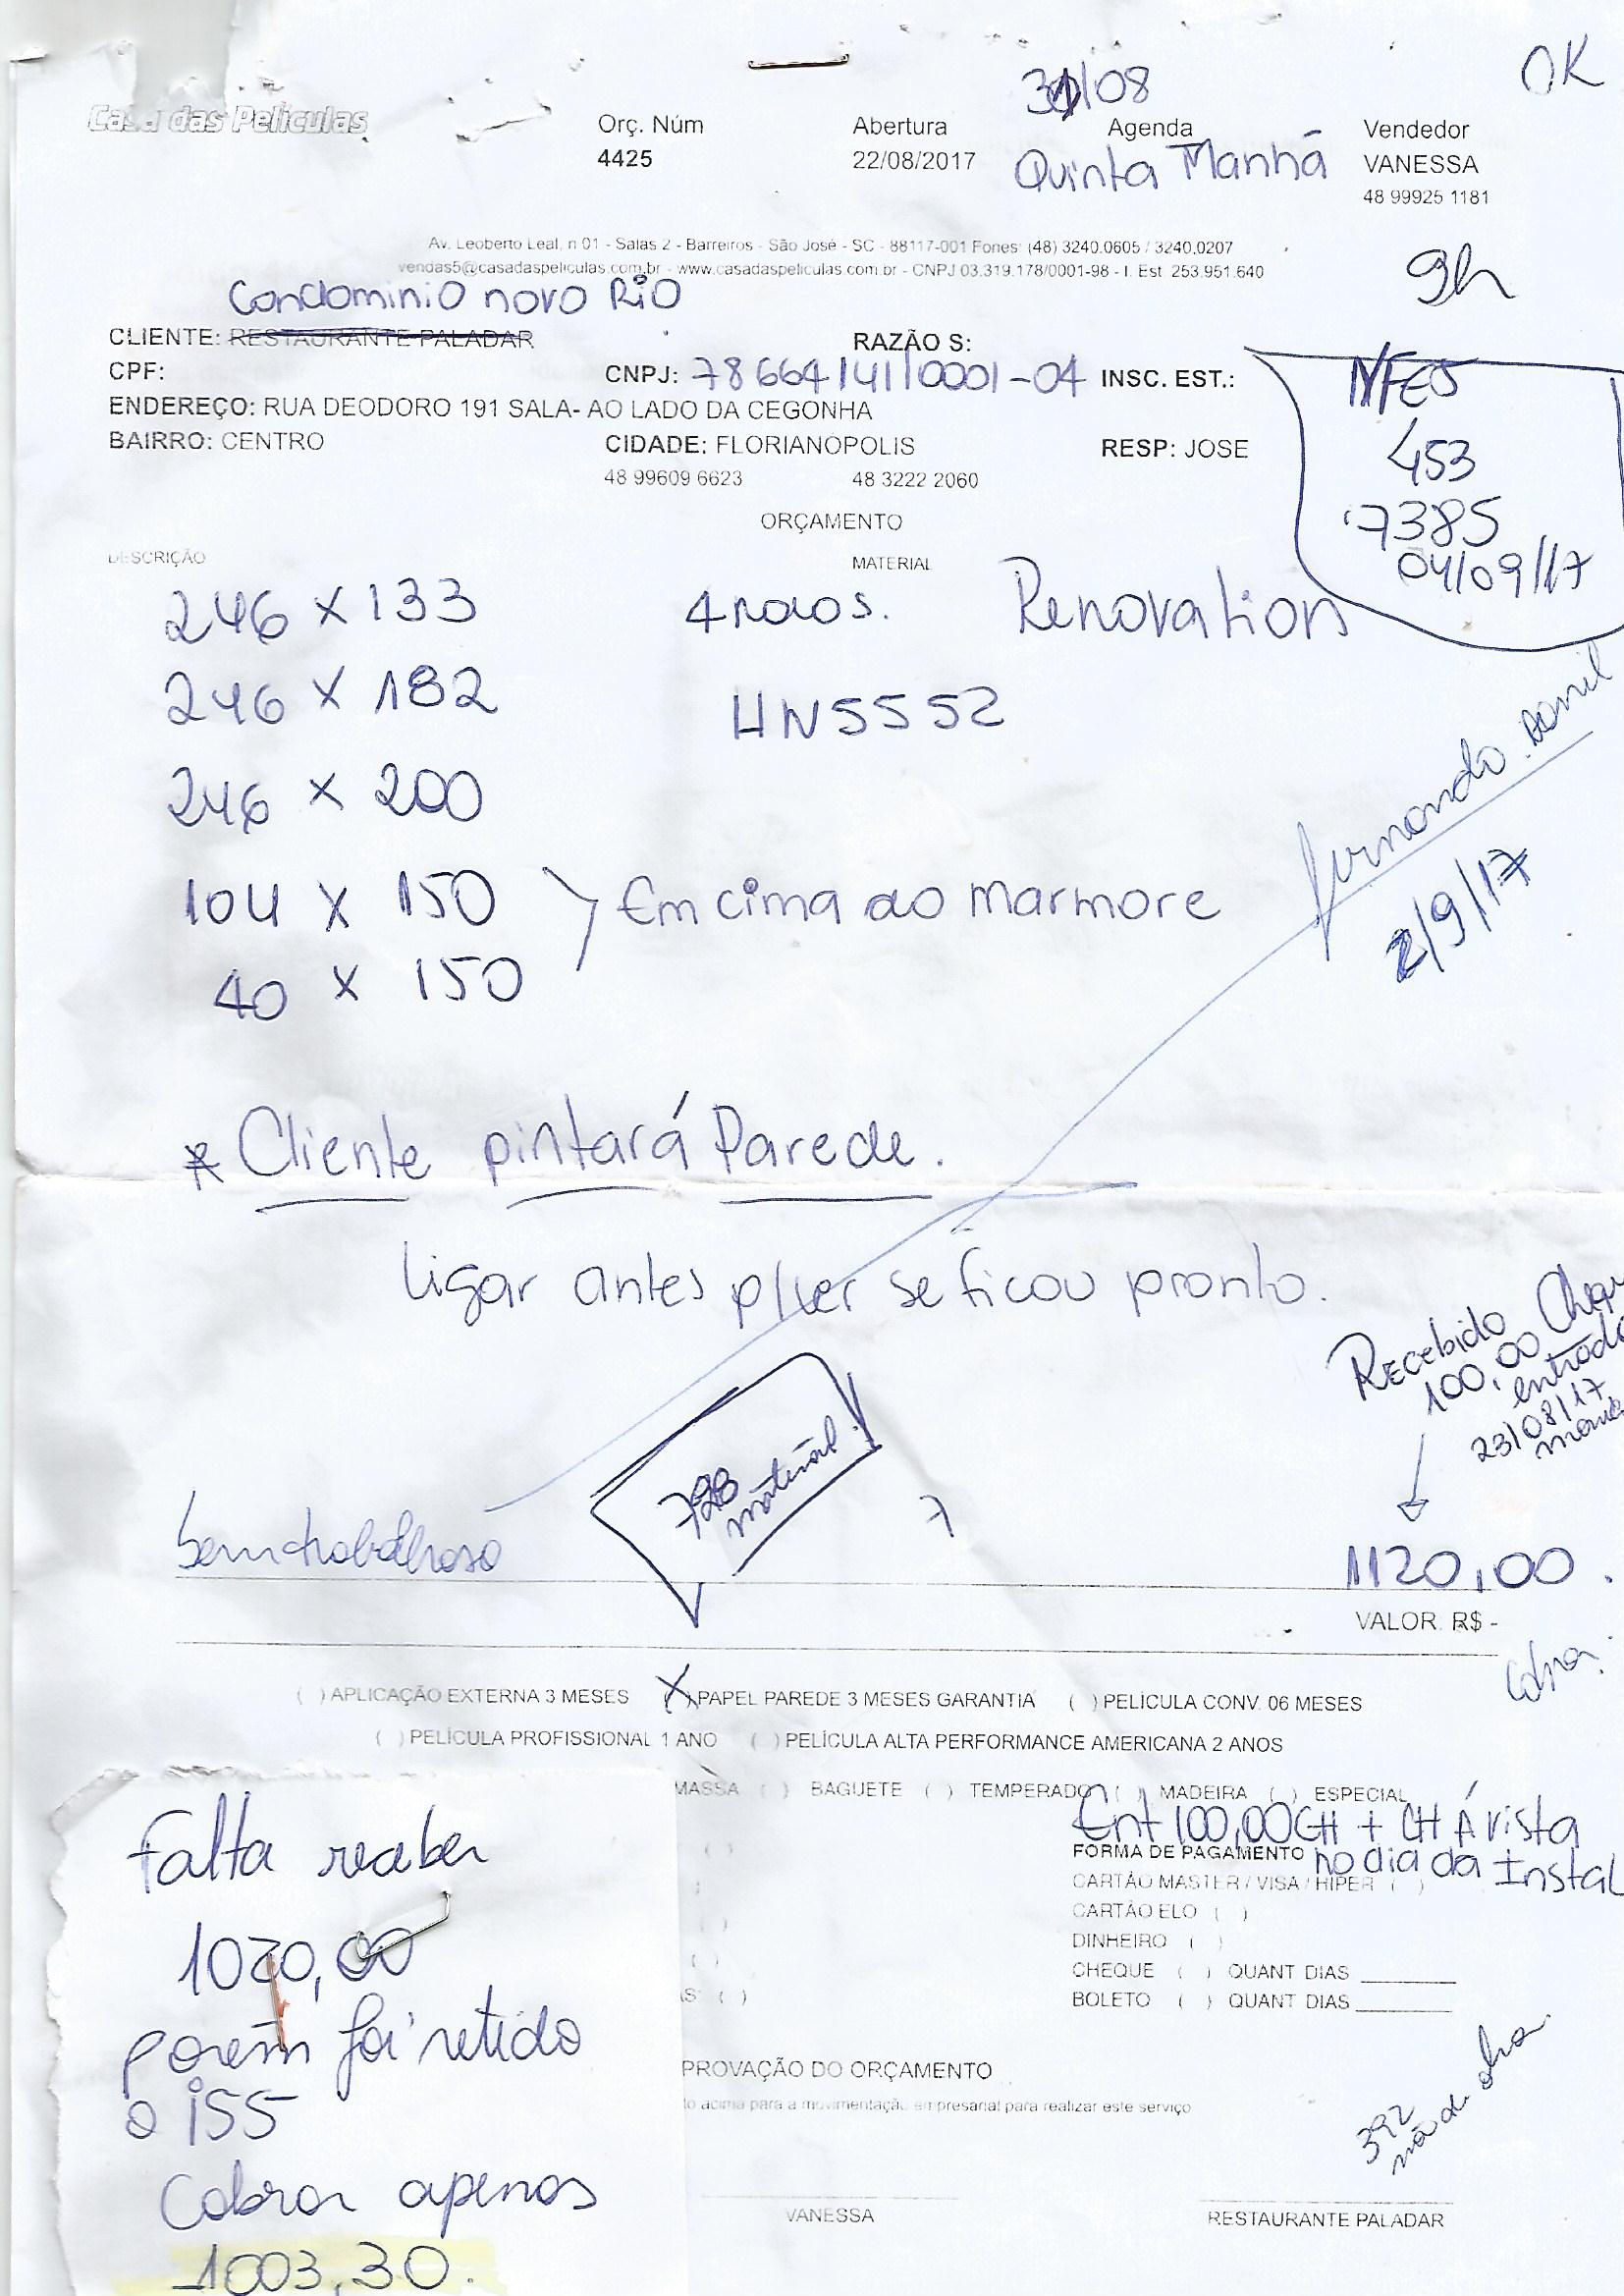 OK
31/08
Casa das Películas
Orç. Núm Abertura Agenda Vendedor
4425 22/08/2017 Quinta Manhã VANESSA
48 99925 1181
Av. Leoberto Leal, n 01 - Salas 2 - Barreiros - São José - SC - 88117-001 Fones: (48) 3240.0605 / 3240.0207
vendas5@casadaspeliculas.com.br - www.casadaspeliculas.com.br - CNPJ 03.319.178/0001-98 - I. Est 253.951.640
9h
Condominio novo Rio
CLIENTE: RESTAURANTE PALADAR RAZÃO S:
CPF: CNPJ: 78664141/0001-04 INSC. EST.:
ENDEREÇO: RUA DEODORO 191 SALA- AO LADO DA CEGONHA
BAIRRO: CENTRO CIDADE: FLORIANOPOLIS RESP: JOSE
48 99609 6623 48 3222 2060
453
7385
04/09/17
ORÇAMENTO
DESCRIÇÃO MATERIAL
246 x 133 4 rolos. Renovation
246 x 182 HN5552
246 x 200
104 x 150 Em cima do marmore
40 x 150
fernando
2/9/17
* Cliente pintará Parede.
Ligar antes p/ver se ficou pronto.
Recebido
100,00
entrada
23/08/17
728
material
7
bem trabalhoso
1120,00
VALOR R$ -
( ) APLICAÇÃO EXTERNA 3 MESES (X) PAPEL PAREDE 3 MESES GARANTIA ( ) PELÍCULA CONV. 06 MESES
( ) PELÍCULA PROFISSIONAL 1 ANO ( ) PELÍCULA ALTA PERFORMANCE AMERICANA 2 ANOS
MASSA ( ) BAGUETE ( ) TEMPERADO ( ) MADEIRA ( ) ESPECIAL
Ent 100,00 CH + CH Á vista
FORMA DE PAGAMENTO no dia da Instal
CARTÃO MASTER / VISA / HIPER ( )
CARTÃO ELO ( )
DINHEIRO ( )
CHEQUE ( ) QUANT DIAS
BOLETO ( ) QUANT DIAS
PROVAÇÃO DO ORÇAMENTO
to acima para a movimentação empresarial para realizar este serviço
392
mão de obra.
VANESSA RESTAURANTE PALADAR
Falta receber
1020,00
porém foi retido
o iSS
Cobrar apenas
1003,30.